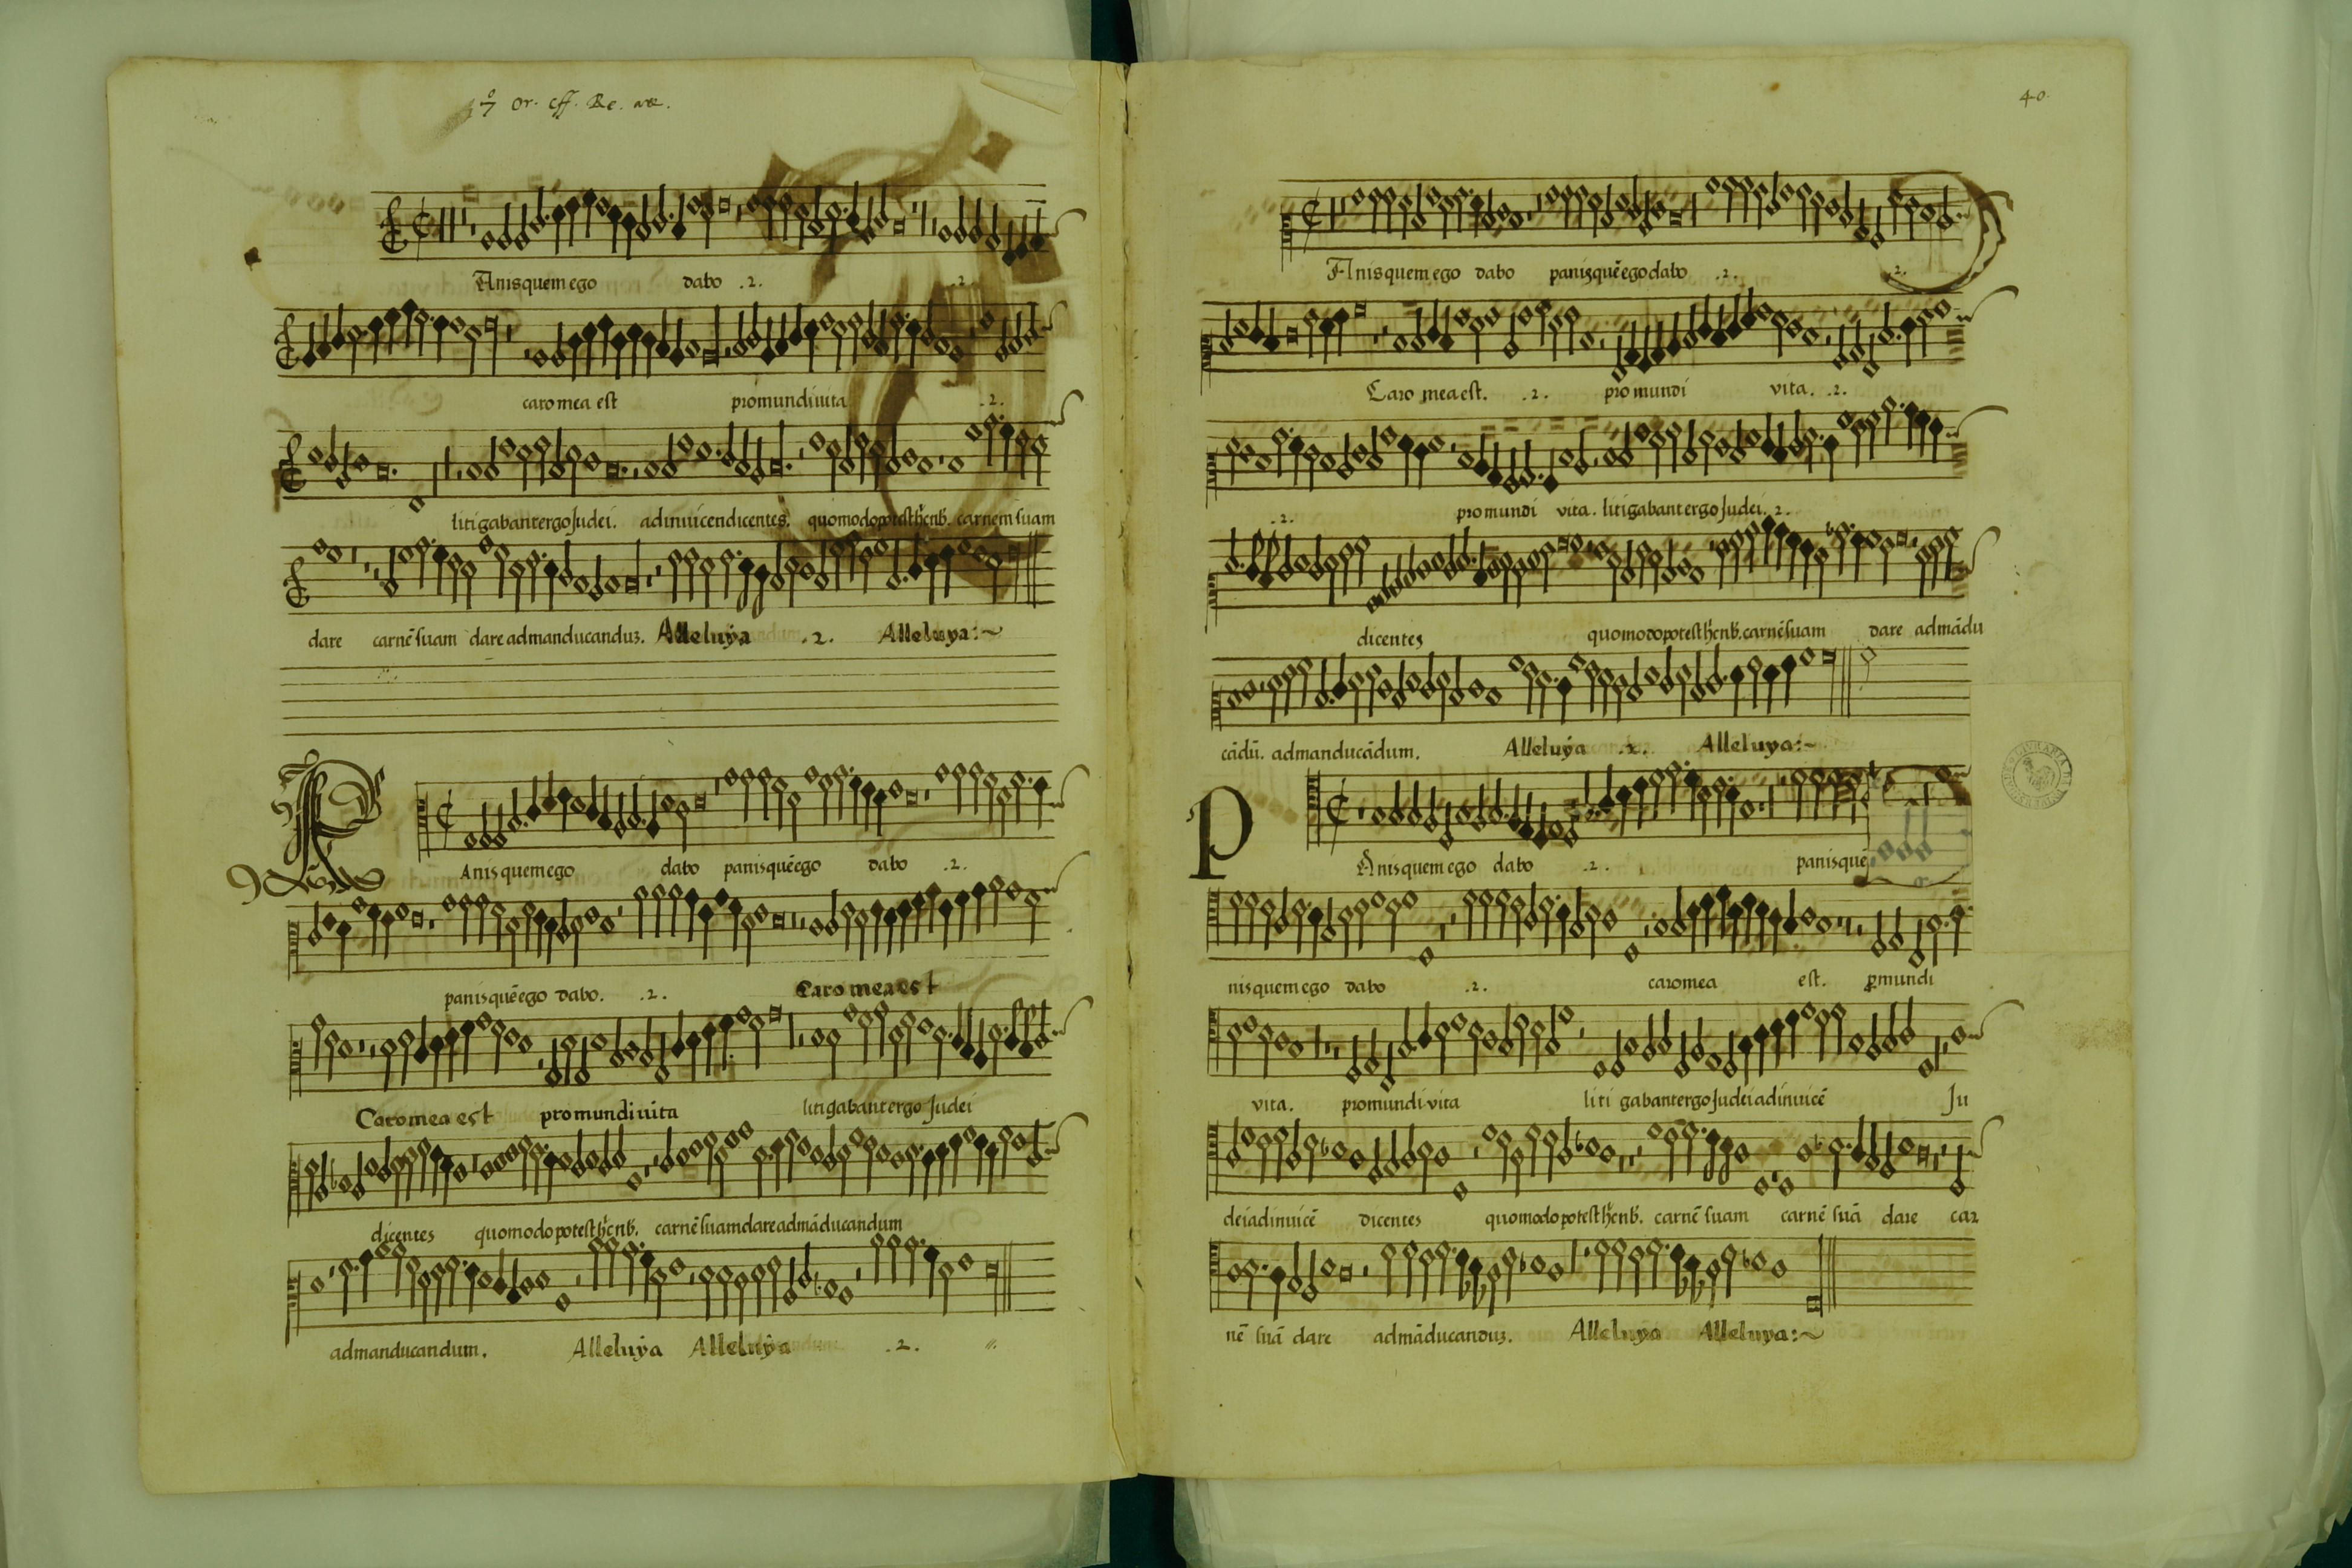 or. eff. Re. ae.
Anisquem ego dabo .2. .2.
caro mea est pro mundi vita .2.
litigabant ergo Judei. adinuicen dicentes. quomodo potest hic nb. carnem suam
dare carnē suam dare ad manducanduz. Alleluya .2. Alleluya:~
P
Anisquem ego dabo panis quē ego dabo .2.
panis quē ego dabo. .2. Caro mea est
Caro mea est pro mundi uita litigabant ergo Judei
dicentes quomodo potest hic nb. carnē suam dare ad māducandum
ad manducandum. Alleluya Alleluya .2.
40.
Anisquem ego dabo panis quē ego dabo .2. .2.
Caro mea est. .2. pro mundi vita. .2.
.2. pro mundi vita. litigabant ergo Judei. 2.
dicentes quomodo potest hic nb. carnē suam dare ad mādu
cādū. ad manducādum. Alleluya .2. Alleluya:~
P
Anisquem ego dabo .2. panis quē
nisquem ego dabo .2. caro mea est. ꝓ mundi
vita. pro mundi vita liti gabant ergo Judei adinuicē Ju
dei adinuicē dicentes quomodo potest hic nb. carnē suam carnē suā dare car
nē suā dare ad māducanduz. Alleluya Alleluya:~